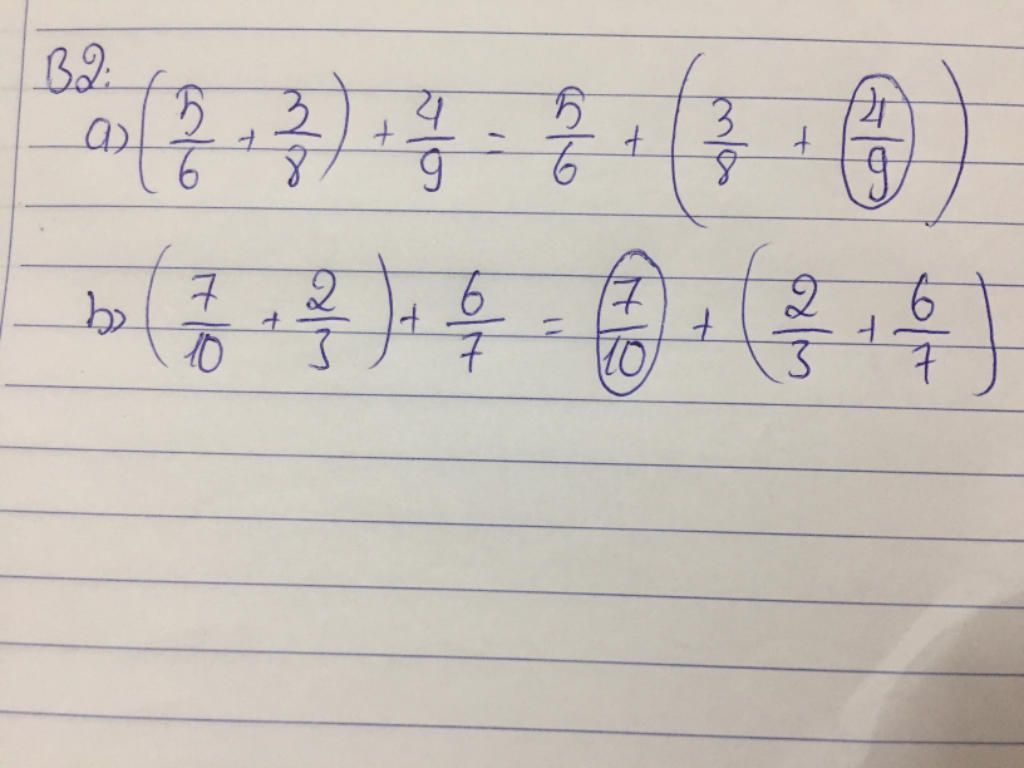 B2:
a) (5/6 + 3/8) + 4/9 = 5/6 + (3/8 + 4/9)
b) (7/10 + 2/3) + 6/7 = 7/10 + (2/3 + 6/7)